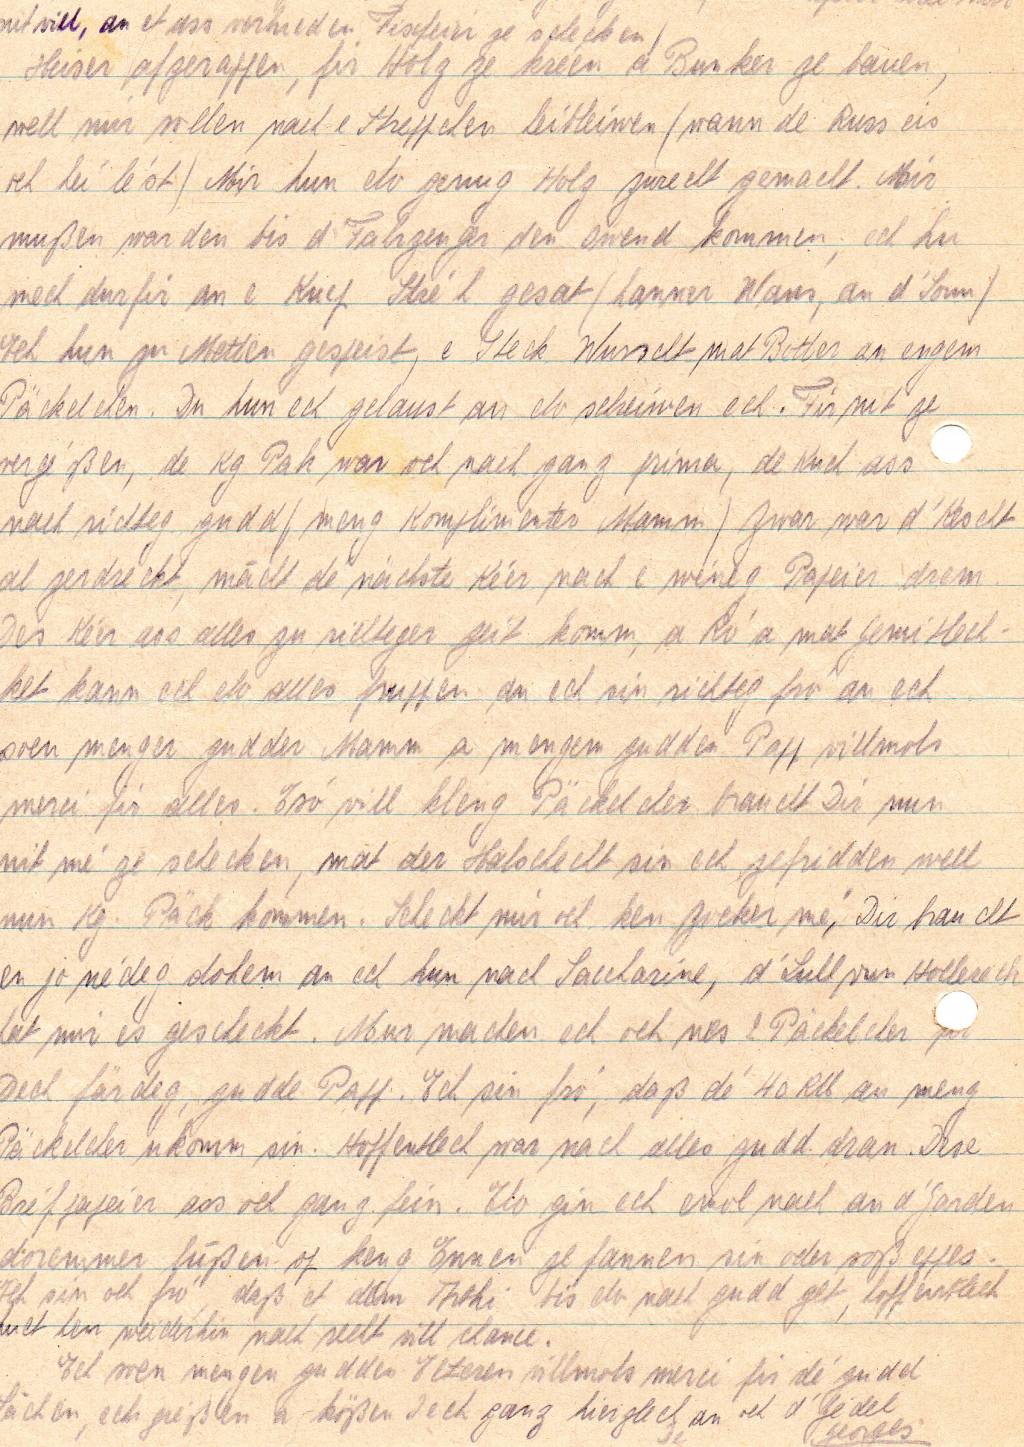 nit vill, an et ass verbueden Fispeier ze schecken)
Heiser ofgeraffen, fir Holz ze kréen a Bunker ze bauen,
well mir sollen nach e Streffchen leibleiwen (wann de Russ eis
och léi lést) Mir hun elo genug Holz zurecht gemacht. Mir
mußen warden bis d'Fahrzeuger den Owend kommen, ech hu
mech durfir an e Kuef Stré'h gesat (hanner Haus, an d'Sonn)
Ech hun zu Metten gespeist, e Steck Wurscht mat Botter an engem
Päckelchen. Du hun ech gelaust an elo schreiwen ech. Fir nit ze
vergéßen, de Kg Pak war och nach ganz prima, de Kuch ass
nach richteg gudd (meng Komplimenter Mamm) Zwar war d'Këscht
al zerdréckt, mächt de nächste Kéer nach e wéneg Papeier drem.
Des Kéer ass alles zu richteger Zeit komm, a Ró'a mat Gemitlech-
ket kann ech elo alles fruppen an ech sin richteg fró an ech
soen menger gudder Mamm a mengem gudden Papp villmols
merci fir alles. Esó vill kleng Päckelcher braucht Dir nun
nit mé ze schecken, mat der Halschecht sin ech zefridden well
nun Kg. Päck kommen. Scheckt mir och ken Zocker mé, Dir braucht
en jo nédeg dohem an ech hun nach Saccharine, d'Lull vun Hollerech
hat mir es gescheckt. Mur machen ech och nes 2 Päckelcher fir
Dech färdeg, gudde Papp. Ech sin fró, daß dé 40 RM an meng
Päckelcher ukomm sin. Hoffentlech war nach alles gudd dran. Dese
Bréfpapeier ass och ganz fein. Elo gin ech emol nach an d'Gärden
doremmer lußen of keng Ennen ze fannen sin oder soß eppes.
Ech sin och fró, daß et dem Théhi bis elo nach gudd gét, hoffentlech
huet hen weiderhin nach recht vill chance.
Ech soen mengen gudden Elteren villmols merci fir dé gudd
Sachen, ech gréißen a kößen Iech ganz hierzlech an och d'Gédel
Georges